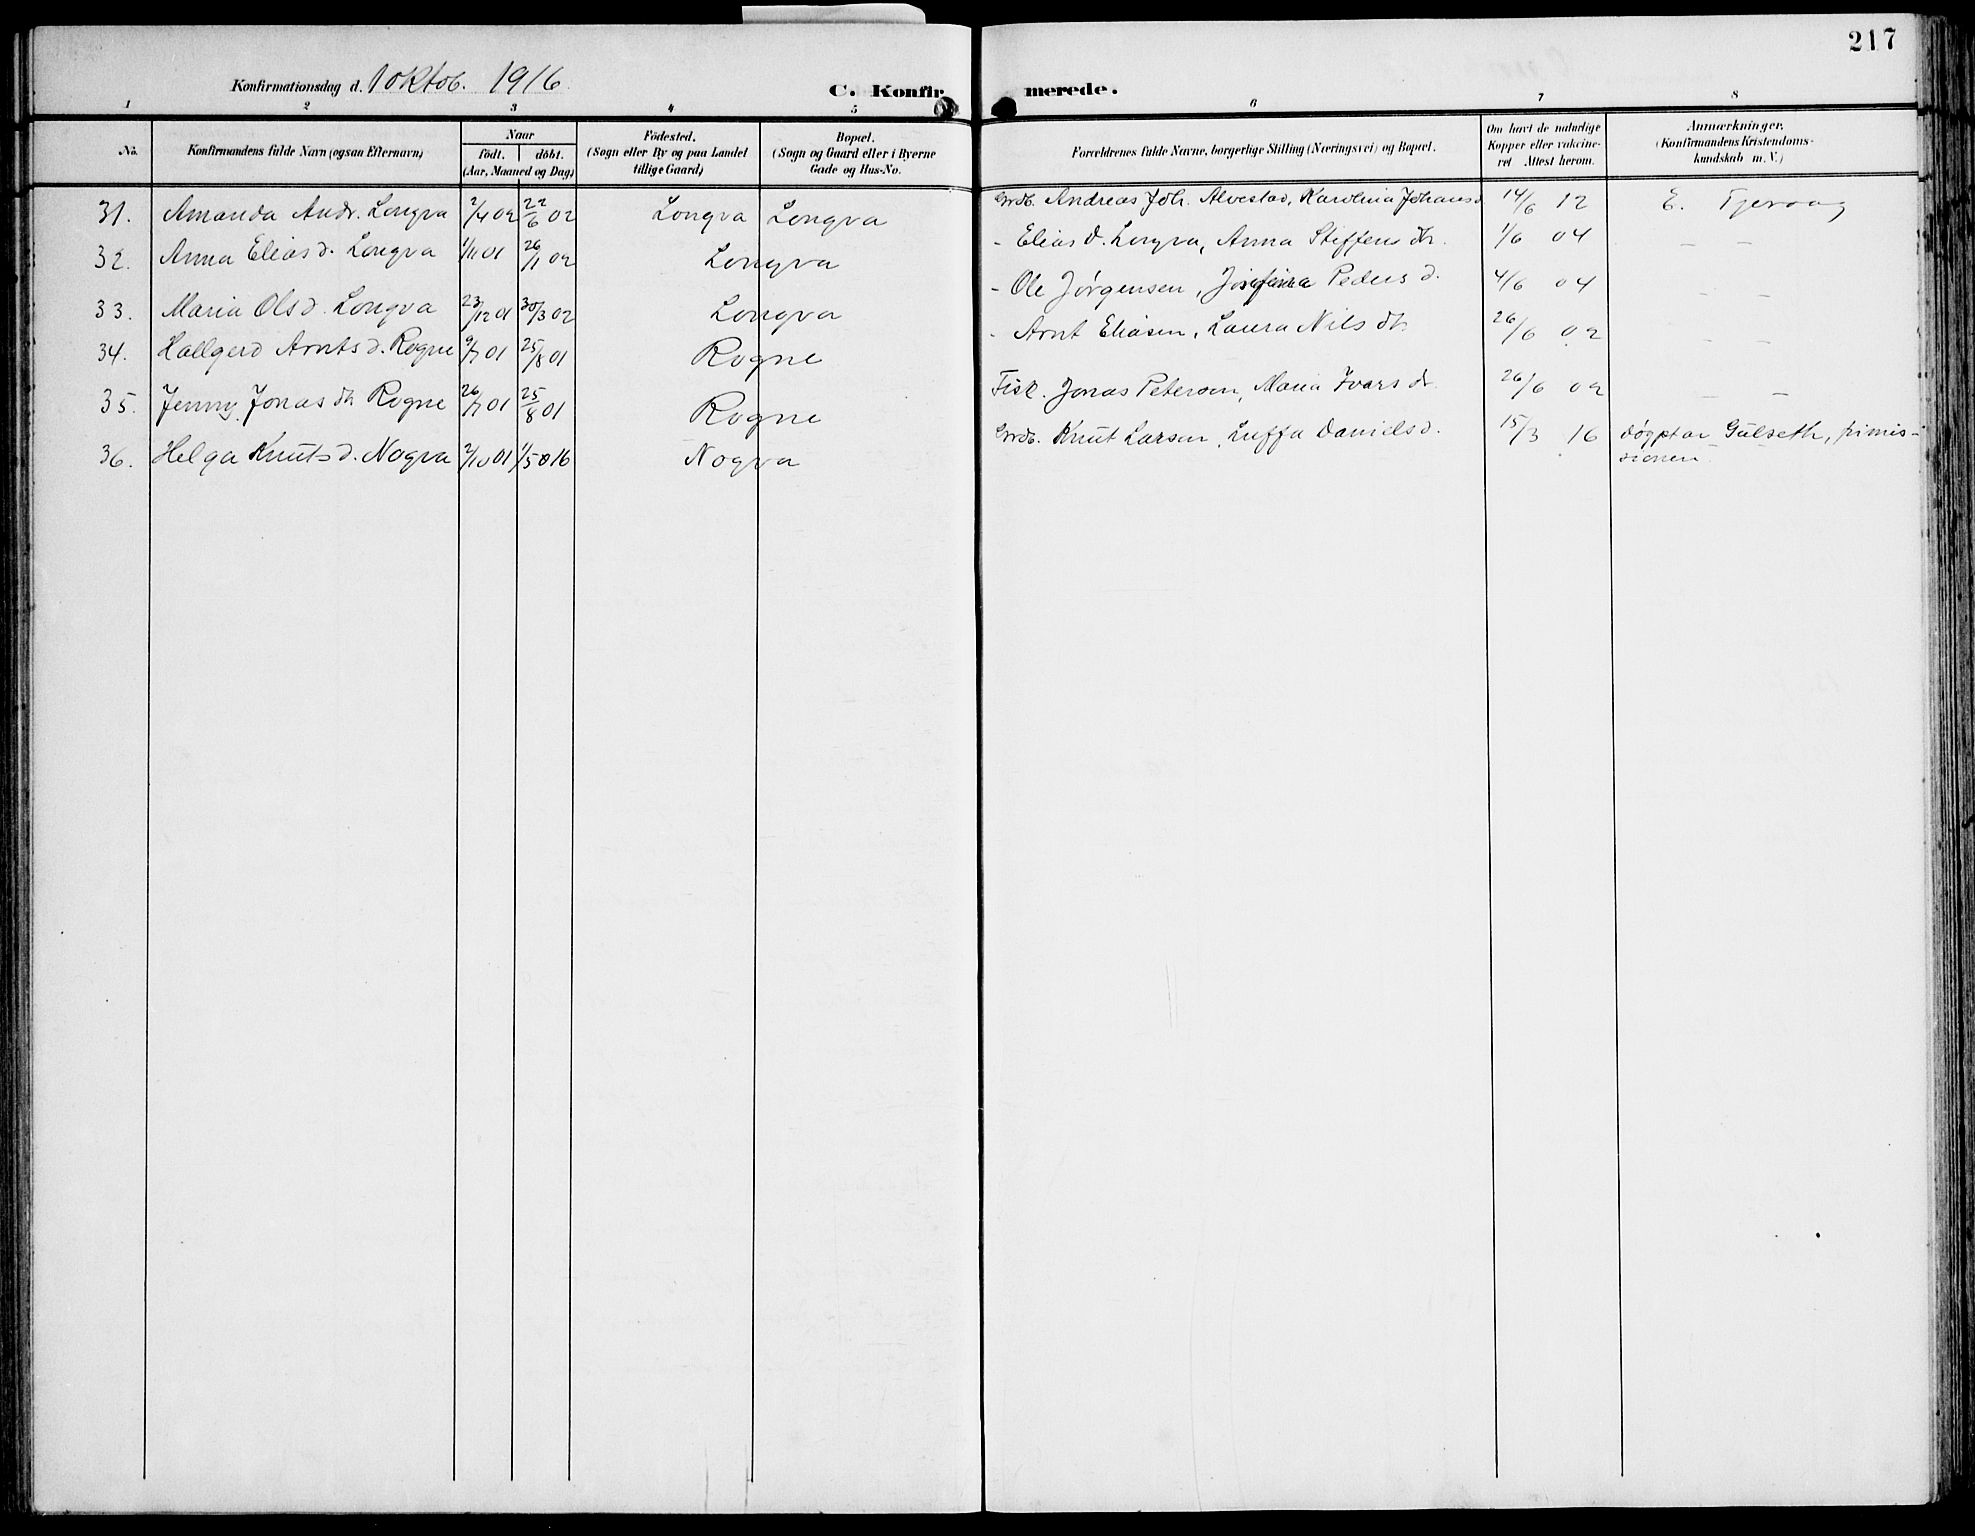 217
Konfirmationsdag d. 1 oktob. 1916.
C. Konfir merede.
1 2 3 4 5 6 7 8
No. Konfirmandens fulde Navn (ogsaa Efternavn) Naar födt. döbt. (Aar, Maaned og Dag) Födested. (Sogn eller By og paa Landet tillige Gaard) Bopæl. (Sogn og Gaard eller i Byerne Gade og Hus-No. Forældrenes fulde Navne, borgerlige Stilling (Næringsvei) og Bopæl. Om havt de naturlige Kopper eller vakcineret Attest herom. Anmærkninger. (Konfirmandens Kristendomskundskab m. V.)
31. Amanda Andr. Longva 2/4 02 22/6 02 Longva Longva Grdb. Andreas Joh. Alvestad, Karolina Johansd 14/6 12 E. Tjervaag
32. Anna Elias d. Longva 1/11 01 26/1 02 Longva - Elias d. Longva, Anna Steffens dtr. 1/6 04 - -
33. Maria Ols d. Longva 23/12 01 30/3 02 Longva - Ole Jørgensen, Josefina Peders d. 4/6 04 - -
34. Hallgerd Arnts d. Rogne 9/7 01 25/8 01 Rogne - Arnt Eliasen, Laura Nils dtr 26/6 02 - -
35. Jenny Jonas dtr Rogne 26/7 01 25/8 01 Rogne Fisk. Jonas Petersen, Maria Ivars dr. 26/6 02 - -
36. Helga Knuts d. Nogva 2/10 01 1/5 16 Nogva Grdb. Knut Larsen, Luffa Daniels d. 15/3 16 døypt av Gulseth, frimis-
sionen